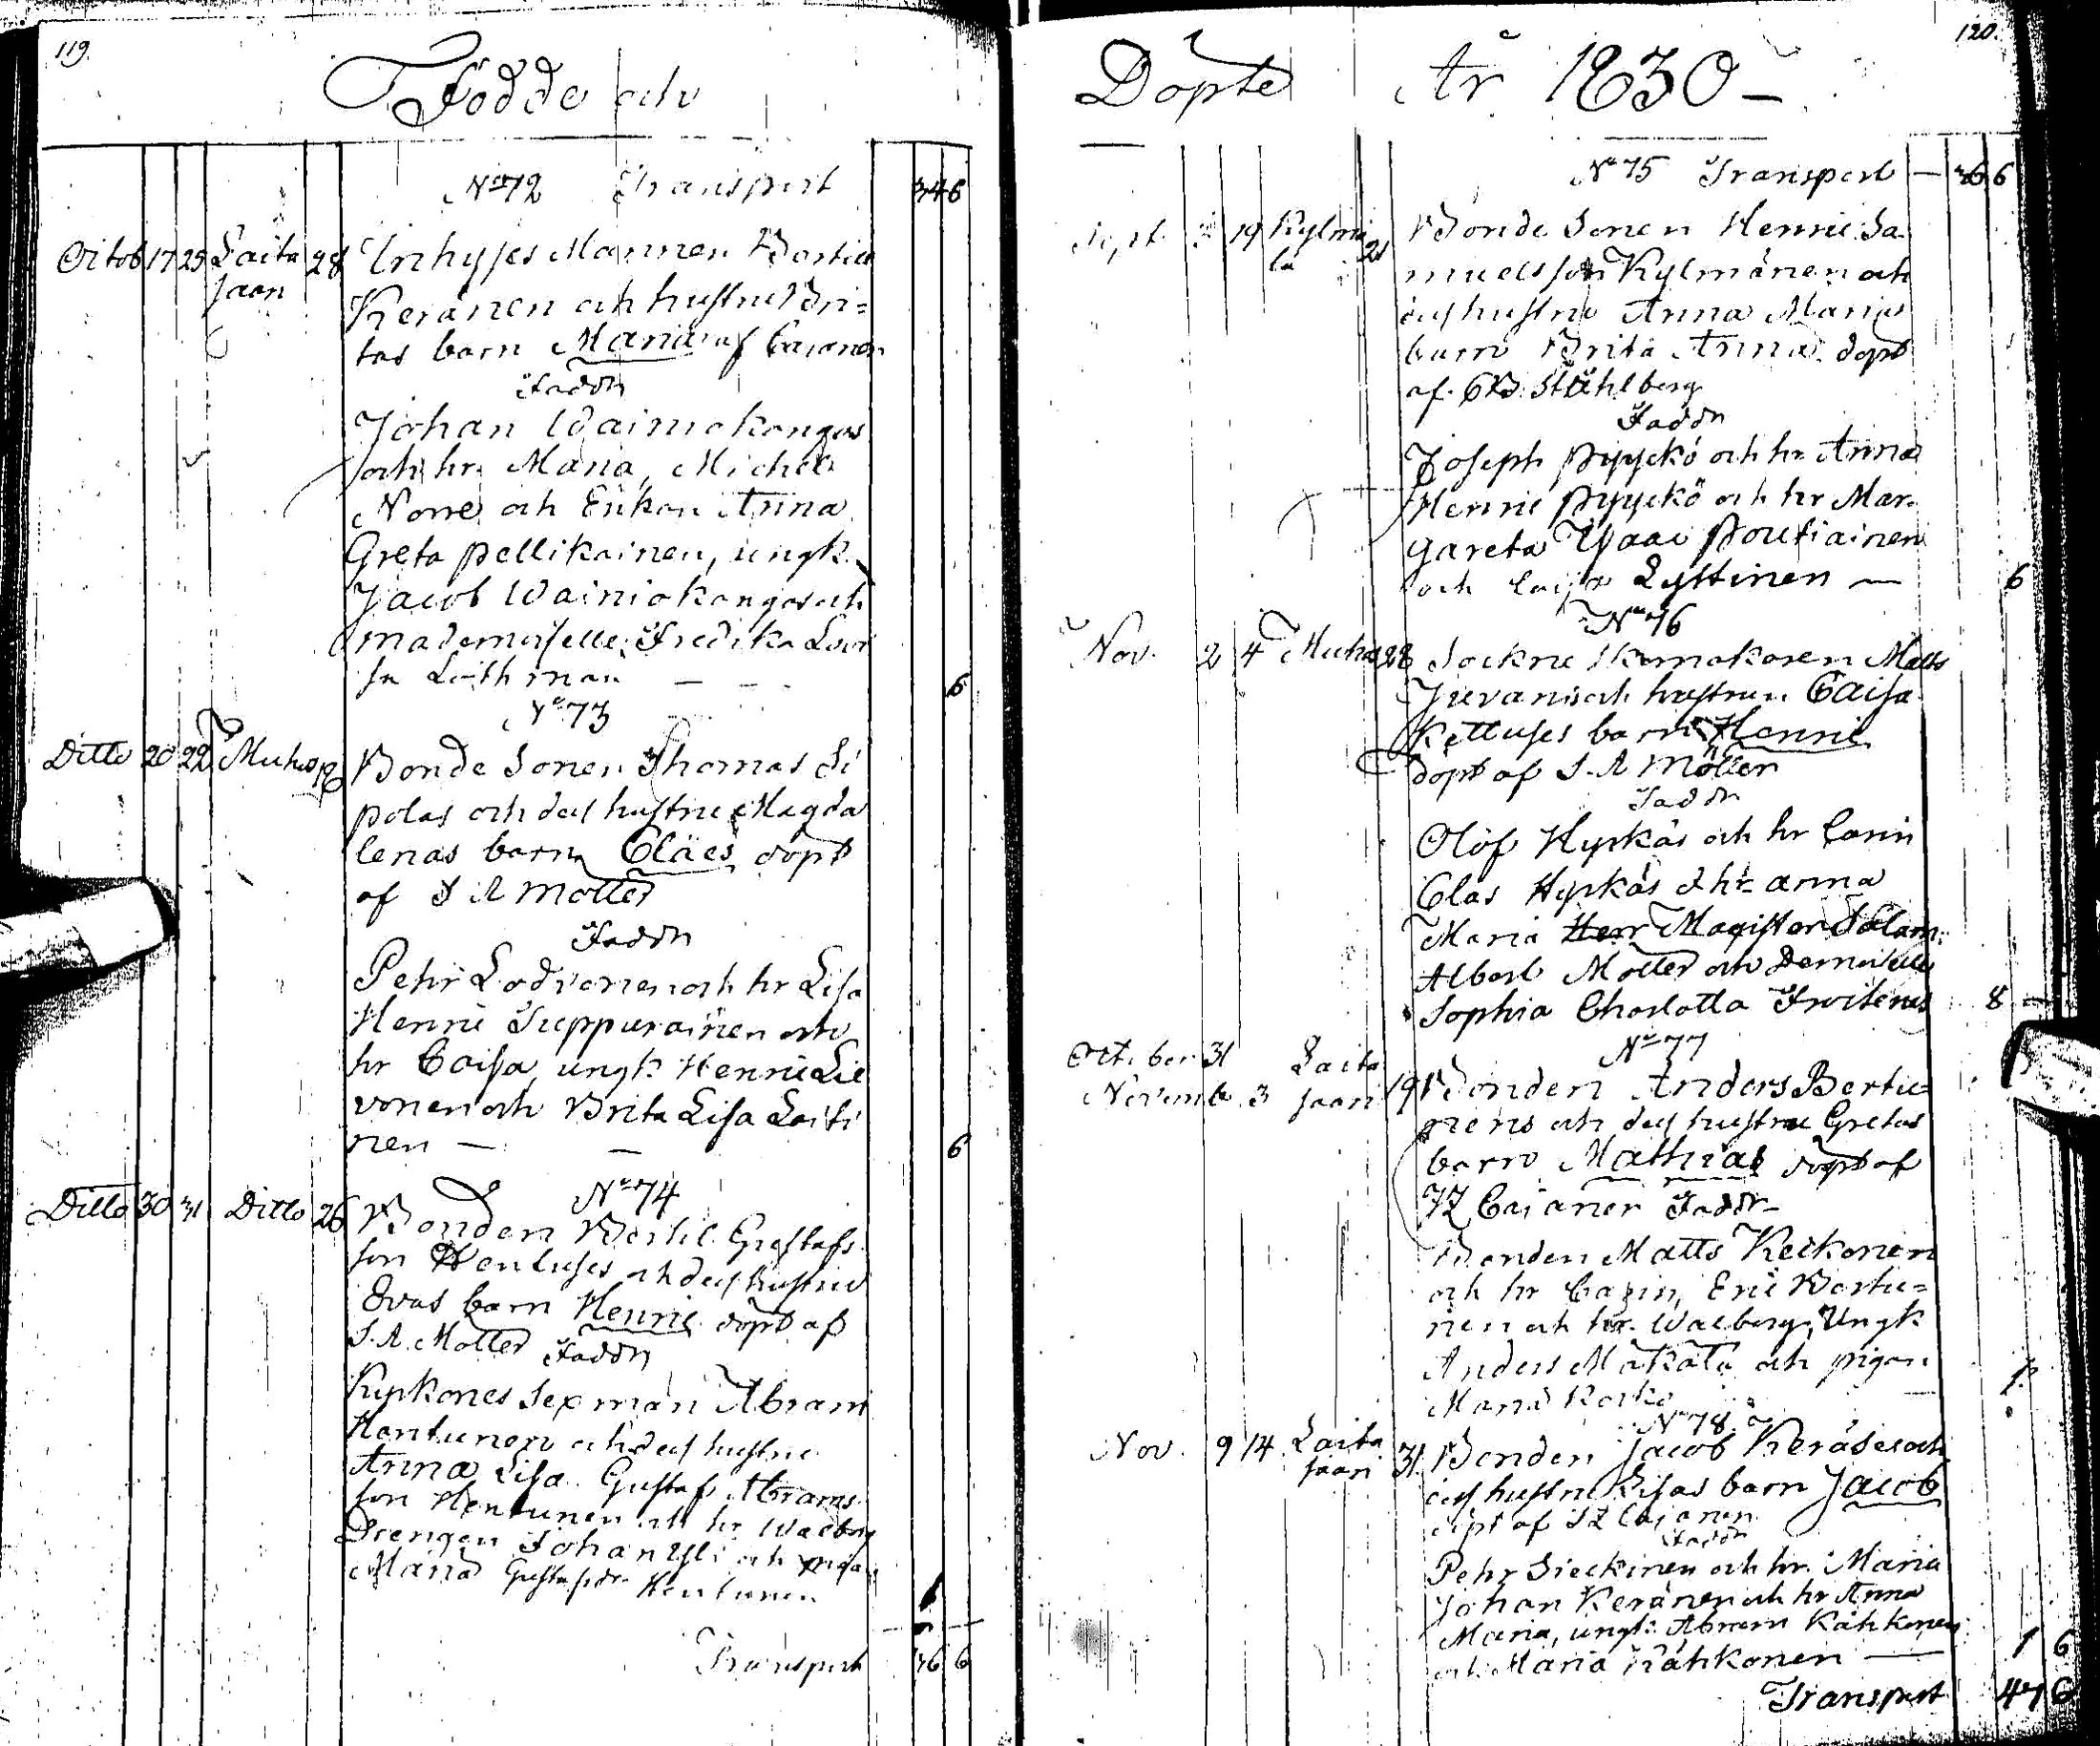 119.
Födde och
No 72 Transport 34 6
Octob 17 23 Laita 28 Inhyses Mannen Bertill
saari
Keränen och hustru Bri=
tas barn Maria af Cajaner
Faddr
Johan Wainiokangas
och hr. Maria, Michel
Norre och Enkan Anna
Greta Pellikainen, ungk.
Jacob Wainiokangas och
mademoiselle Fredika Lovi
sa Lithman — 6
No 73
Ditto 20 22 Muhos Bonde Sonen Thomas Si
polas och dess hustru Magda
lenas barn Claes döpt
af S A Moller
Faddr
Pehr Lodvonen och hr Lisa
Henric Suppurainen och
hr Caisa, ungk. Henric Lie
vonen och Brita Lisa Laiti
nen — — 6
No 74
Ditto 30 31 Ditto 26 Bonden Bertil Gustafs
son Hentuses och dess hustru
Evas barn Henric döpt af
S. A. Moller Faddr
Kyrkones Sexman Abram
Hentunen och dess hustru
Anna Lisa. Gustaf Abrams
son Hentunen och hr Walborg
Drengen Johan Yli och pigan
Maria Gustafsdr Hentunen
Transport 36 6
120.
Döpte År 1830 —
No 75 Transport — 36 6
Sept. 19 Kylmä 21 Bonde Sonen Henric Sa
lä
muelsson Kylmänen och
dess hustru Anna Marias
barn Brita Anna döpt
af C B. Ståhlberg
Faddr
Joseph Pyyckö och hr Anna
Henric Pyyckö och hr Mar
gareta Isaac Poutiainen
och Caisa Lyttinen — 6
No 76
Nov. 2 4 Muhos 28 Sockne Skomakaren Matts
Juvanis och hustrun Caisa
Kettuses barn Henric
döpt af S. A Möller
Faddr
Olof Hyrkäs och hr Carin
Clas Hyrkäs & hr anna
Maria Herr Magister Salam.
Albert Moller och Demoiselle
Sophia Charlotta Frosterus 8 —
No 77
October 31 Laita
Novemb. 3 saari 19 Bonden Anders Bertu-
nens och dess hustru Gretas
barn Mathias döpt af
I Z Cajaner Faddr
Bonden Matts Keikonen
och hr Carin, Eric Bertu=
nen och hr. Walborg, Ungk
Anders Mäkätä och pigan
Maria — 1.
No 78
Nov. 9 14 Laita 31 Bonden Jacob Keräses och
saari
dess hustru Lisas barn Jacob
döpt af I Z Cajaner
Faddr
Pehr Sieckinen och hr. Maria
Johan Keränen och hr Anna
Maria, ungk: Abram Kähkönen
och Maria Kähkönen — 1 6
Transport 47 6